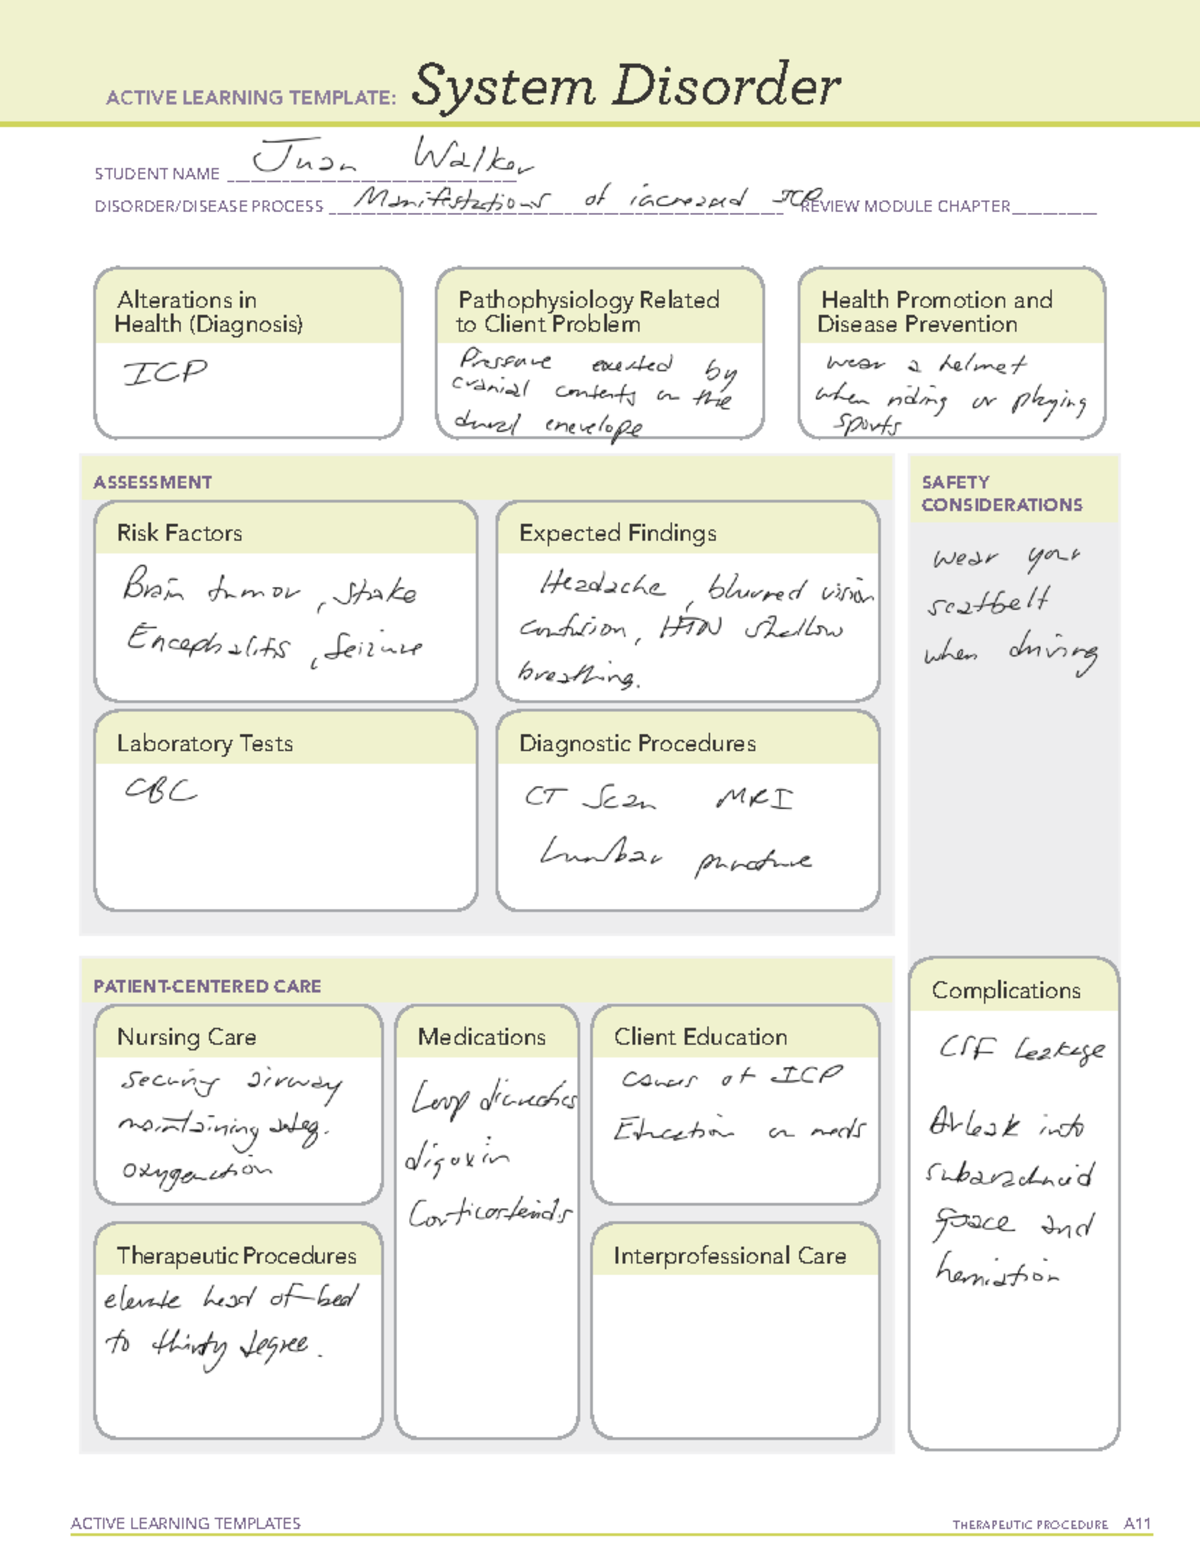 ACTIVE LEARNING TEMPLATE: System Disorder
STUDENT NAME Juan Walker
DISORDER/DISEASE PROCESS Manifestations of increased ICP REVIEW MODULE CHAPTER
Alterations in
Health (Diagnosis)
ICP
Pathophysiology Related
to Client Problem
Pressure exerted by
cranial contents on the
dural enevelope
Health Promotion and
Disease Prevention
wear a helmet
when riding or playing
sports
ASSESSMENT
Risk Factors
Brain tumor, stroke
Encephalitis, seizure
Expected Findings
Headache, blurred vision
confusion, HTN shallow
breathing.
Laboratory Tests
CBC
Diagnostic Procedures
CT Scan MRI
Lumbar puncture
SAFETY
CONSIDERATIONS
wear your
seatbelt
when driving
PATIENT-CENTERED CARE
Nursing Care
securing airway
maintaining adeq.
oxygenation
Medications
Loop diuretics
digoxin
Corticosteroids
Client Education
causes of ICP
Education on meds
Therapeutic Procedures
elevate head of bed
to thirty degree.
Interprofessional Care
Complications
CSF leakage
Air leak into
subarachnoid
space and
herniation
ACTIVE LEARNING TEMPLATES
THERAPEUTIC PROCEDURE A11